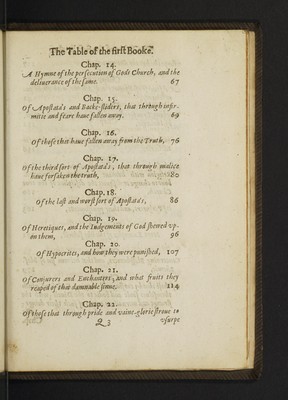 The Table of the first Booke.
Chap. 14.
A Hymne of the persecution of Gods Church, and the
deliuerance of the same. 67
Chap. 15.
Of Apostata's and Backe-sliders, that through infir-
mitie and feare haue fallen away. 69
Chap. 16.
Of those that haue fallen away from the Truth, 76
Chap. 17.
Of the third sort of Apostata's, that through malice
haue forsaken the truth, 80
Chap. 18.
Of the last and worst sort of Apostata's, 86
Chap. 19.
Of Heretiques, and the Iudgements of God shewed vp-
on them, 96
Chap. 20.
Of Hypocrites, and how they were punished, 107
Chap. 21.
Of Coniurers and Enchanters, and what fruits they
reaped of that damnable sinne. 114
Chap. 22.
Of those that through pride and vaine-glorie stroue to
Q 3 vsurpe